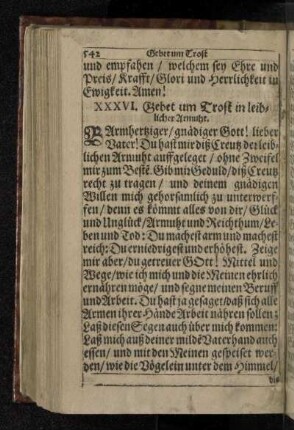 542 Gebet um Trost
und empfahen / welchem sey Ehre und
Preis / Krafft / Glori und Herrlichkeit in
Ewigkeit. Amen!
XXXVI. Gebet um Trost in leib-
licher Armuht.
BArmhertziger / gnädiger Gott! lieber
Vater! Du hast mir diß Creutz der leib-
lichen Armuht auffgeleget / ohne Zweifel
mir zum Beste. Gib mir Geduld / diß Creutz
recht zu tragen / und deinem gnädigen
Willen mich gehorsamlich zu unterwerf-
fen / denn es kömmt alles von dir / Glück
und Unglück / Armuht und Reichthum / Le-
ben und Tod: Du machest arm und machest
reich: Du erniedrigest und erhöhest. Zeige
mir aber / du getreuer GOtt! Mittel und
Wege / wie ich mich und die Meinen ehrlich
ernähren möge / und segne meinen Beruff
und Arbeit. Du hast ja gesaget / daß sich alle
Armen ihrer Hände Arbeit nähren sollen:
Laß diesen Segen auch über mich kommen:
Laß mich auß deiner milde Vaterhand auch
essen / und mit den Meinen gespeiset wer-
den / wie die Vögelein unter dem Himmel /
die